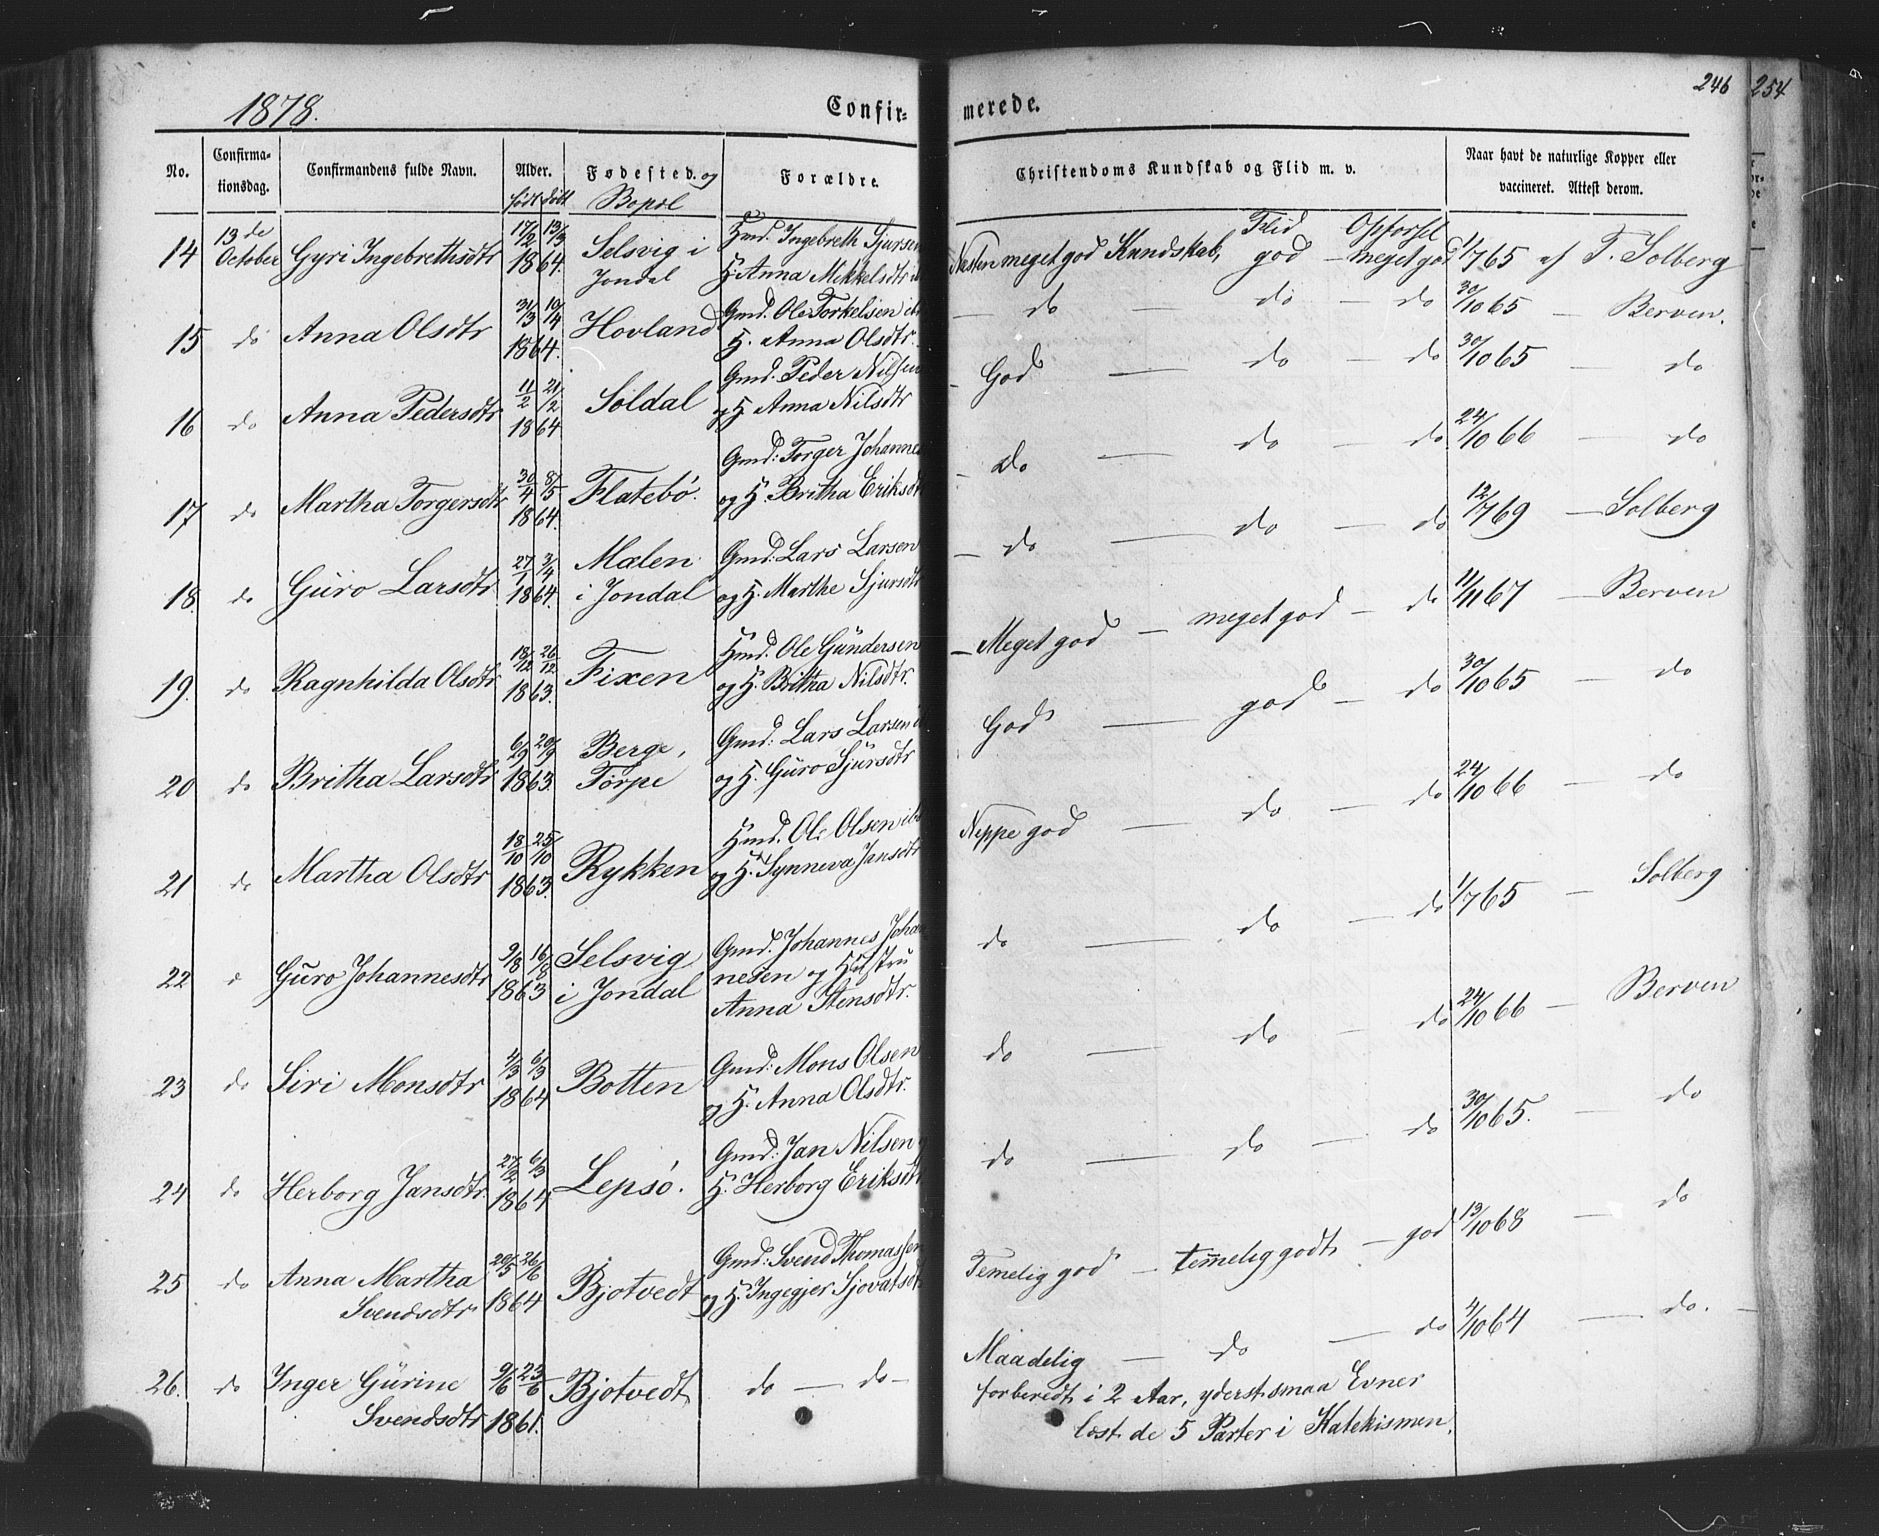 246 254
1878. Confir- merede.
No. Confirma-tionsdag. Confirmandens fulde Navn. Alder. født døbt Fødested. og Bopæl Forældre. Christendoms Kundskab og Flid m. v. Naar havt de naturlige Kopper eller vaccineret. Attest derom.
Flid Opførsel
14 13de October Gyri Ingebrethsdtr 17/2 13/3 1864. Selsvig i Jondal Hmd. Ingebreth Sjursen H. Anna Mikkelsdtr Næsten meget god Kundskab, god — meget god 1/7 65 af T. Solberg
15 do Anna Olsdtr 31/3 10/4 1864. Hovland Gmd. Ole Torkelsen ibd H. Anna Olsdtr. — do — do — do 30/10 65 — Berven.
16 do Anna Pedersdtr 11/2 21/2 1864 Soldal Gmd. Peder Nilsen og H. Anna Nilsdtr — God — do — do 30/10 65 — do
17 do Martha Torgersdtr 30/4 8/5 1864. Flatebø. Gmd: Torger Johannes og H. Britha Eriksdt — do — do — do 24/10 66 — do
18. do Guro Larsdtr 27/1 3/4 1864. Mælen i Jondal Gmd: Lars Larsen og H. Marthe Sjursdtr — do — do — do 12/7 69 — Solberg
19. do Ragnhilda Olsdtr 18/12 26/12 1863. Fixen Hmd. Ole Gundersen og H. Britha Nilsdtr. — Meget god — meget god — do 11/11 67 — Berven
20 do Britha Larsdtr 6/9 20/9 1863. Berge, Torpe Gmd: Lars Larsen og H. Guro Sjursdtr God — god — do 30/10 65 — do
21 do Martha Olsdtr 18/10 25/10 1863. Rykken Hmd. Ole Olsen ibd og H. Synneva Jansdtr Neppe god — do — do 24/10 66 — do
22 Guro Johannesdtr 9/8 16/8 1863 Selsvig i Jondal Gmd. Johannes Johan nesen og Hustru Anna Stensdtr. do — do — do 1/7 65 — Solberg
23 do Siri Monsdtr 4/3 6/3 1864 Botten Gmd: Mons Olsen og H. Anna Olsdtr. do — do — do 24/10 66 — Berven
24 do Herborg Jansdtr. 27/2 6/3 1864 Lepsø. Gmd: Jan Nilsen H. Herborg Eriksdt do — do — do 30/10 65. — do
25 do Anna Martha Svendsdtr 1864 Bjotvedt Gmd: Svend Thomassen og H. Ingegjer Sjovatsdt Temelig god — temelig godt — god 13/10 68 — do
26. do Inger Gurine Svendsdtr 9/6 23/6 1861. Bjotvedt do — do — Maadelig — do — do /10 64 — do. —
forberedt i 2 Aar, yderst smaa Evner
læst de 5 Parter i Katekismen.